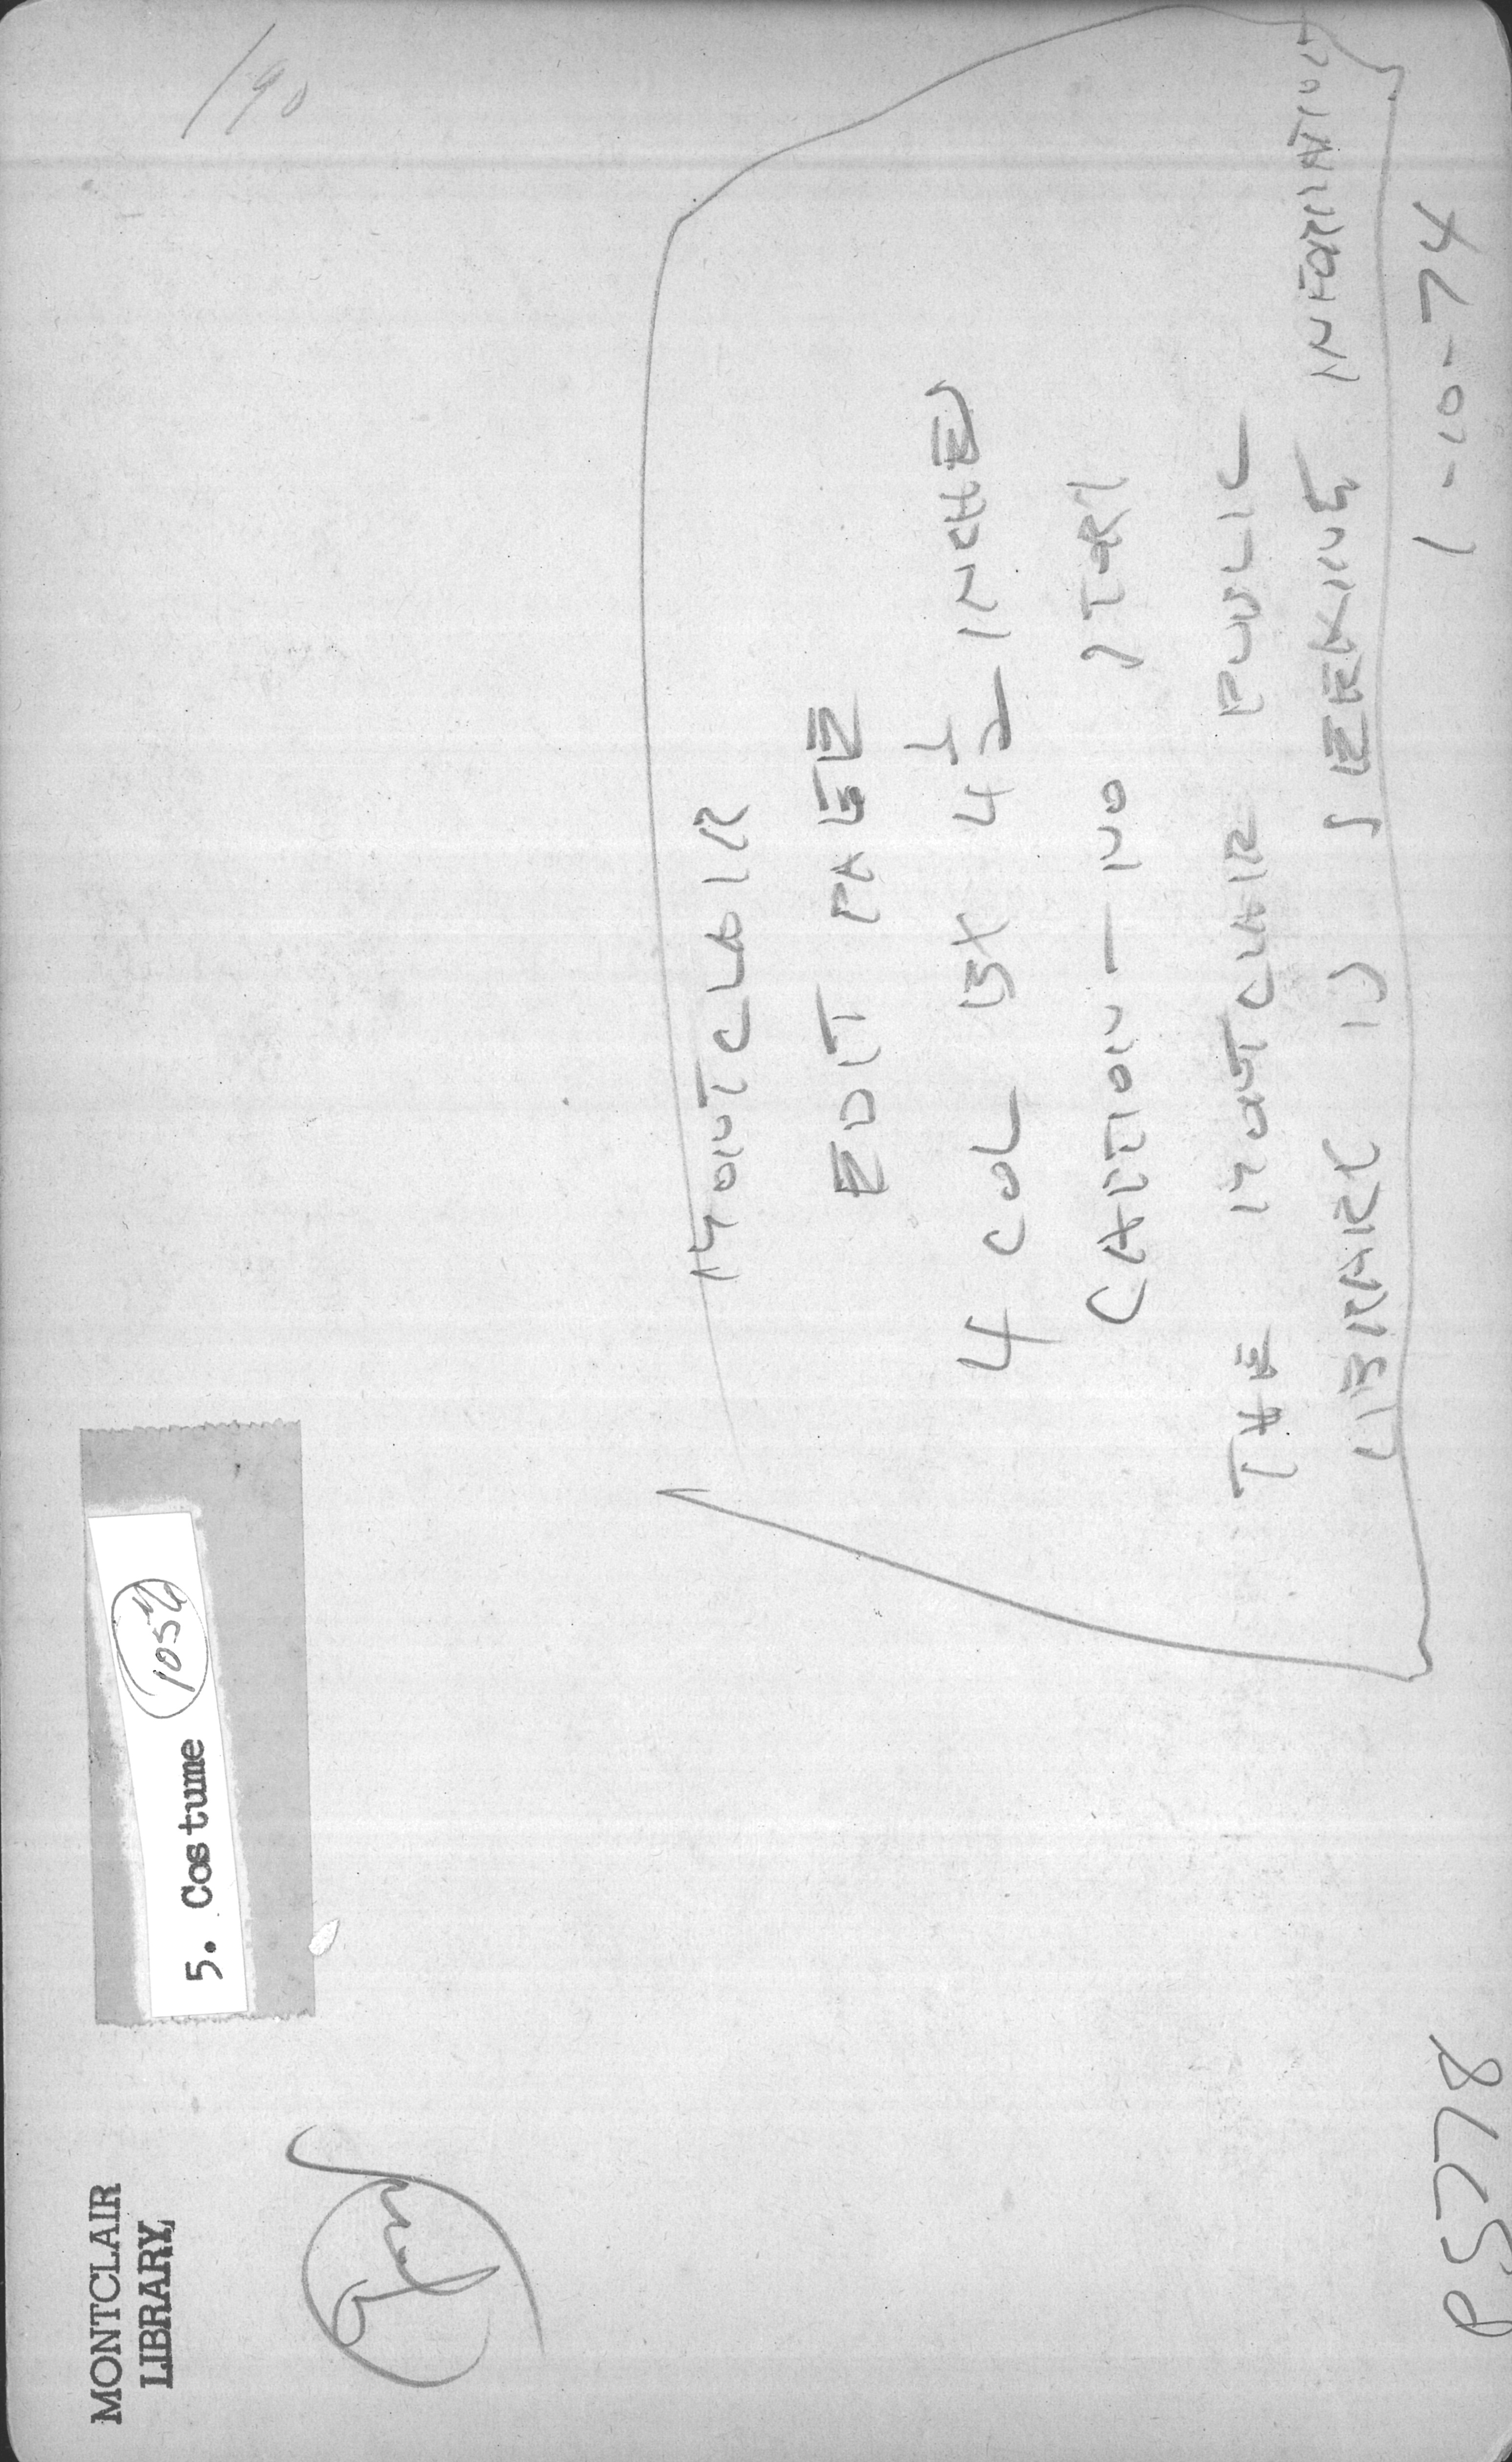 MONTCLAIR
LIBRARY
5. Costume 105%
190
MONTCLAIR
EDIT PAGE
4 COL BX 4 1/2 INCHED
CAPTION - NO STORY
THE MONTCLAIR PUBLIC
LIBRARY IS SEEKING INFORMATION
1-10-74
P5778